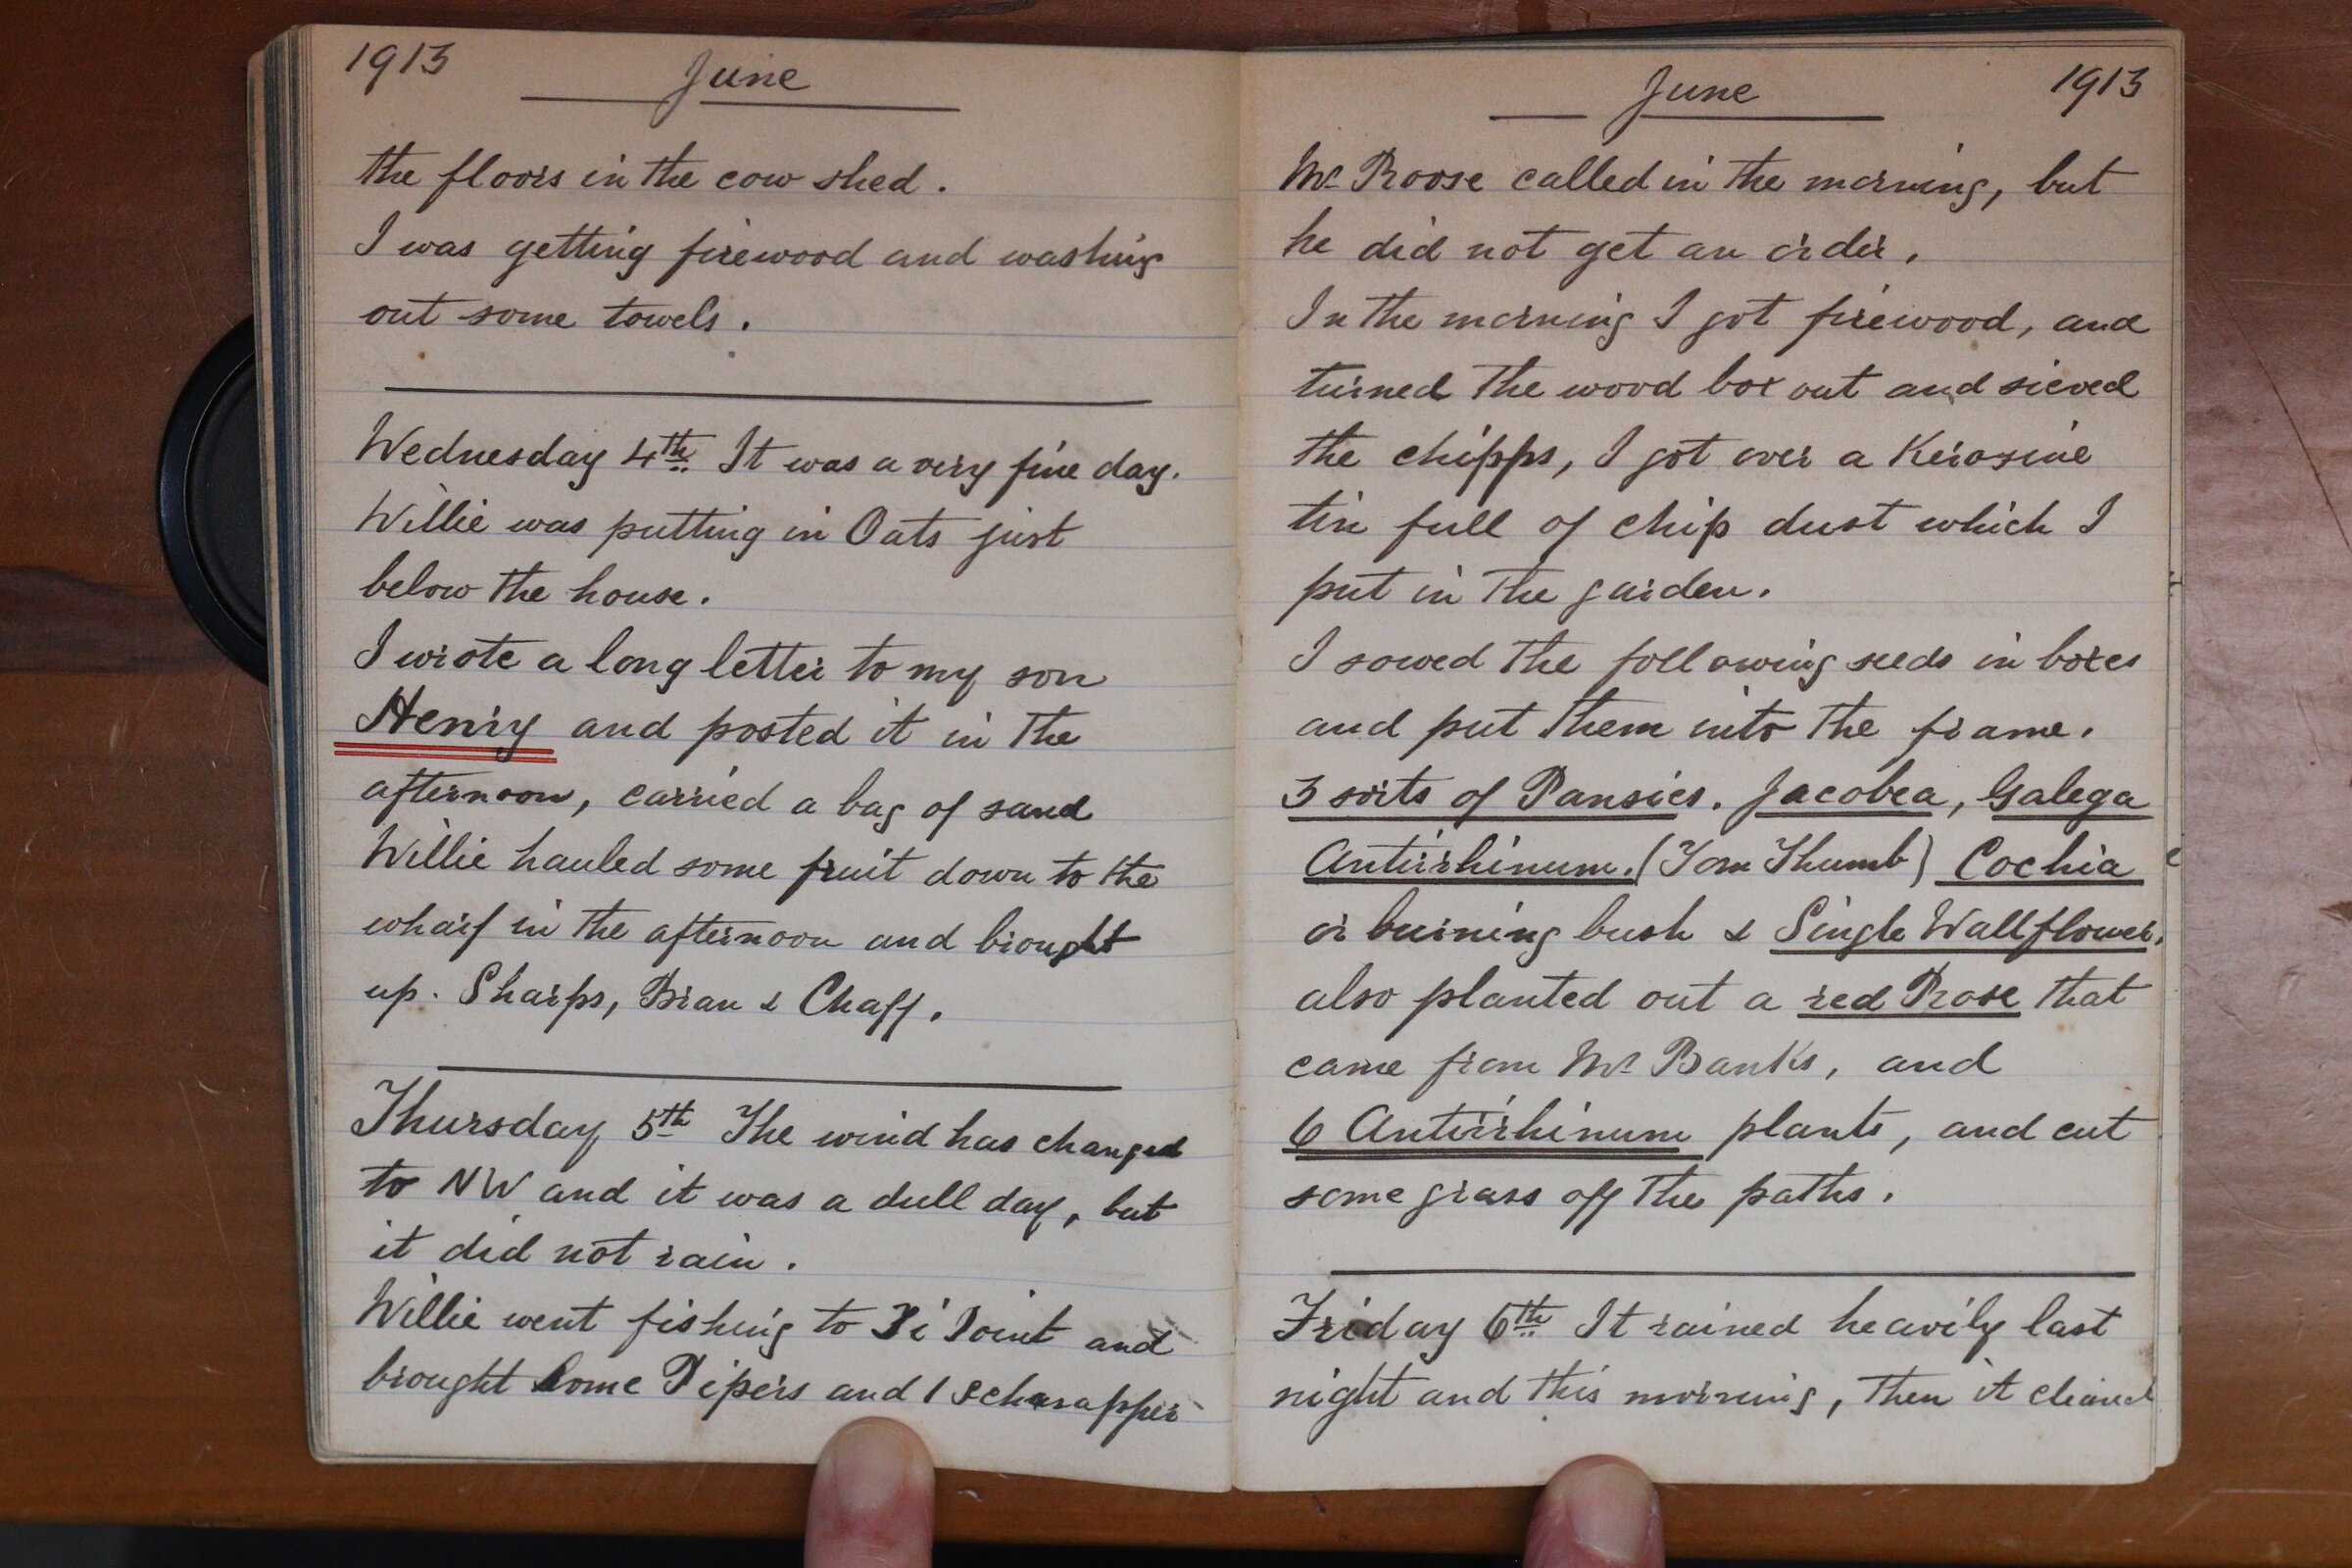 1913
June
the floors in the cow shed.
I was getting firewood and washing
out some towels.
Wednesday 4th It was a very fine day.
Willie was putting in Oats just
below the house.
I wrote a long letter to my son
Henry and posted it in the
afternoon, carried a bag of sand
Willie hauled some fruit down to the
wharf in the afternoon and brought
up. Sharps, Bran & Chaff.
Thursday 5th The wind has changed
to NW and it was a dull day, but
it did not rain.
Willie went fishing to Ti Point and
brought home Pipers and 1 schnapper
June
1913
Mr Roose called in the morning, but
he did not get an order.
In the morning I got firewood, and
turned the wood box out and sieved
the chipps, I got over a Kerosine
tin full of chip dust which I
put in the garden.
I sowed the following seeds in boxes
and put them into the frame.
3 sorts of Pansies. Jacobea, Galega
Antirrhinum. (Tom Thumb) Cochia
or burning bush & Single Wallflower.
also planted out a red Rose that
came from Mr Banks, and
6 Antirrhinum plants, and cut
some grass off the paths.
Friday 6th It rained heavily last
night and this morning, then it cleared